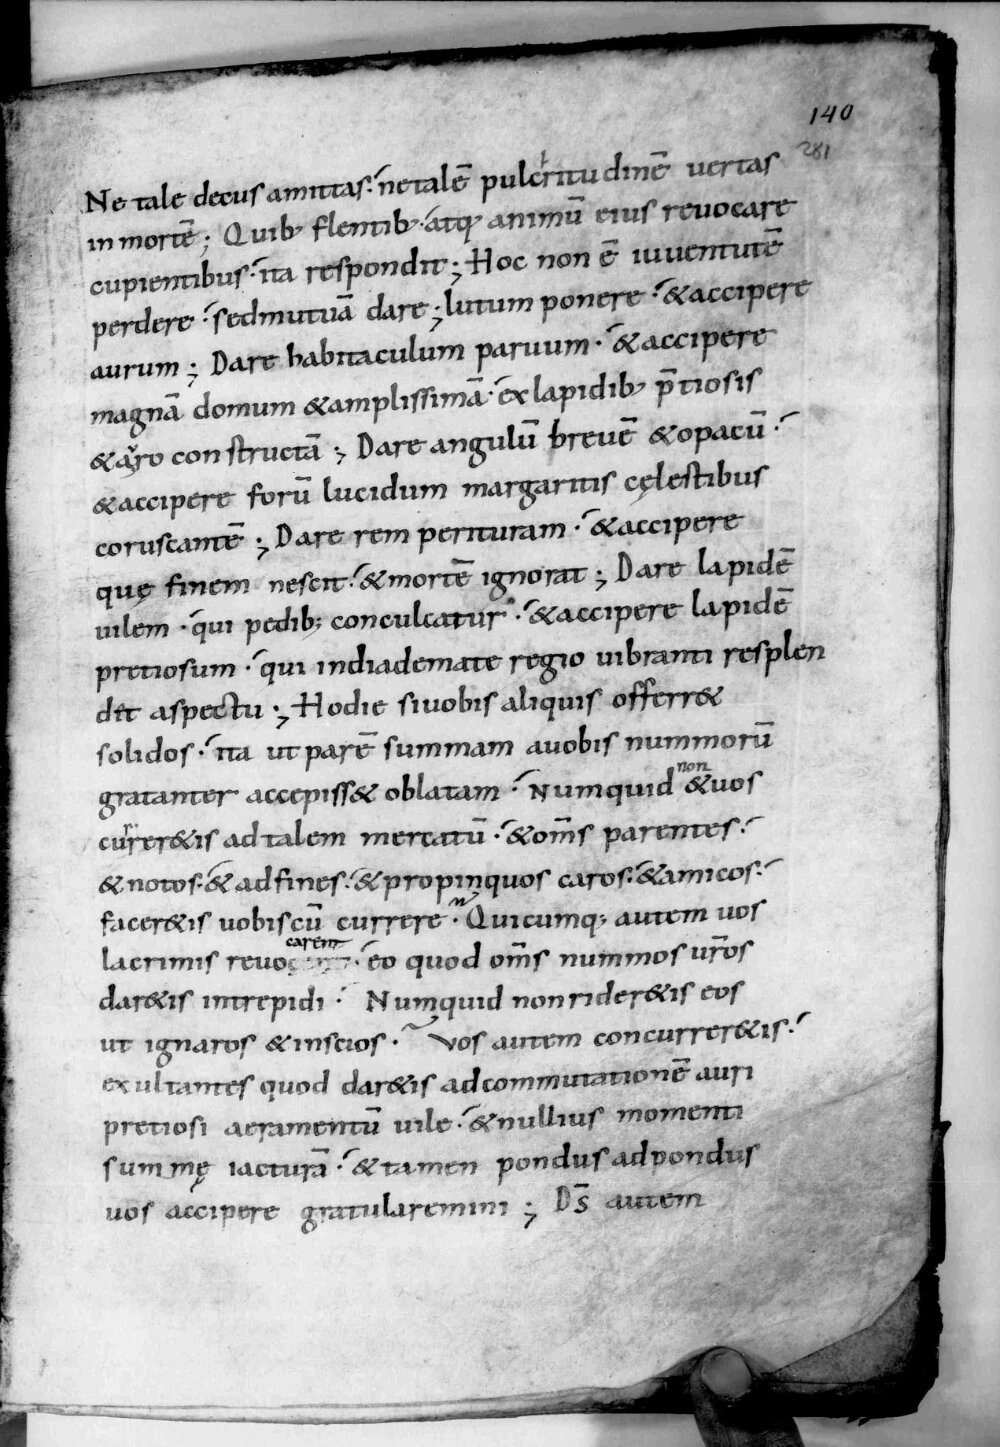 140
281
Ne tale decus amittas · ne talē pulcritudinē vertas
in mortē ; Quib; flentib; · atq; animū eius revocare
cupientibus · ita respondit ; Hoc non ē iuventutē
perdere · sed mutuā dare ; lutum ponere · & accipere
aurum ; Dare habitaculum paruum · & accipere
magnā domum & amplissimā · ex lapidib; p̄tiosis
& auro constructā ; Dare angulū brevē & opacū ·
& accipere forū lucidum margaritis cęlestibus
coruscantē ; Dare rem perituram · & accipere
quę finem nescit · & mortē ignorat ; Dare lapidē
uilem · qui pedib; conculcatur · & accipere lapidē
pretiosum · qui in diademate regio uibranti resplen
dit aspectu ; Hodie si uobis aliquis offerr&
solidos · ita ut parē summam a uobis nummorū
gratanter accepiss& oblatam · Numquid non & uos
currer&is ad talem mercatū · & om̄s parentes ·
& notos · & adfines · & propinquos caros · & amicos ·
facer&is uobiscū currere · Quicumq; autem uos
lacrimis revocarent · eo quod om̄s nummos ur̄os
dar&is intrepidi · Numquid non rider&is eos
ut ignaros & inscios · Vos autem concurrer&is ·
exultantes quod dar&is ad commutationē auri
pretiosi aeramentū uile · & nullius momenti
summę iacturā · & tamen pondus ad pondus
uos accipere gratularemini ; Ds̄ autem